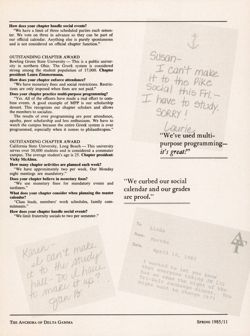 How does your chapter handle social events?
"We have a limit of three scheduled parties each semes-
ter. We vote on three in advance so they can be part of
our official calendar. Anything else is purely spontaneous
and is not considered an official chapter function."
OUTSTANDING CHAPTER AWARD
Bowling Green State University — This is a public univer-
sity in northern Ohio. The Greek system is considered
strong among the student population of 17,000. Chapter
president: Laura Zimmermann.
How does your chapter enforce attendance?
"We have monetary fines and social restrictions. Restric-
tions are only imposed when fines are not paid."
Does your chapter practice multi-purpose programming?
"Yes. All of the officers have made a real effort to com-
bine events. A good example of MPP is our scholarship
dessert. This recognizes our chapter scholars and allows
the members to socialize.
The results of over programming are poor attendance,
apathy, poor scholarship and less enthusiasm. We have to
watch the campus because the entire Greek system is over
programmed, especially when it comes to philanthropies."
OUTSTANDING CHAPTER AWARD
California State University, Long Beach — This university
serves over 30,000 students and is considered a commuter
campus. The average student's age is 25. Chapter president:
Vicky McAlinn.
How many chapter activities are planned each week?
"We have approximately two per week. Our Monday
night meetings are mandatory."
Does your chapter believe in monetary fines?
"We use monetary fines for mandatory events and
tardiness."
What does your chapter consider when planning the master
calendar?
"Class finals, members' work schedules, family com-
mitments."
How does your chapter handle social events?
"We limit fraternity socials to two per semester."
Susan-
I can't make
it to the
social this Fri-
I have to study.
SORRY
Laurie
"We've used multi-
purpose programming—
it's great!"
"We curbed our social
calendar and our grades
are proof."
I can't go
to the study
hall
to make it up?
Linda
Martha
April 10, 1985
THE ANCHORA OF DELTA GAMMA
SPRING 1985/11